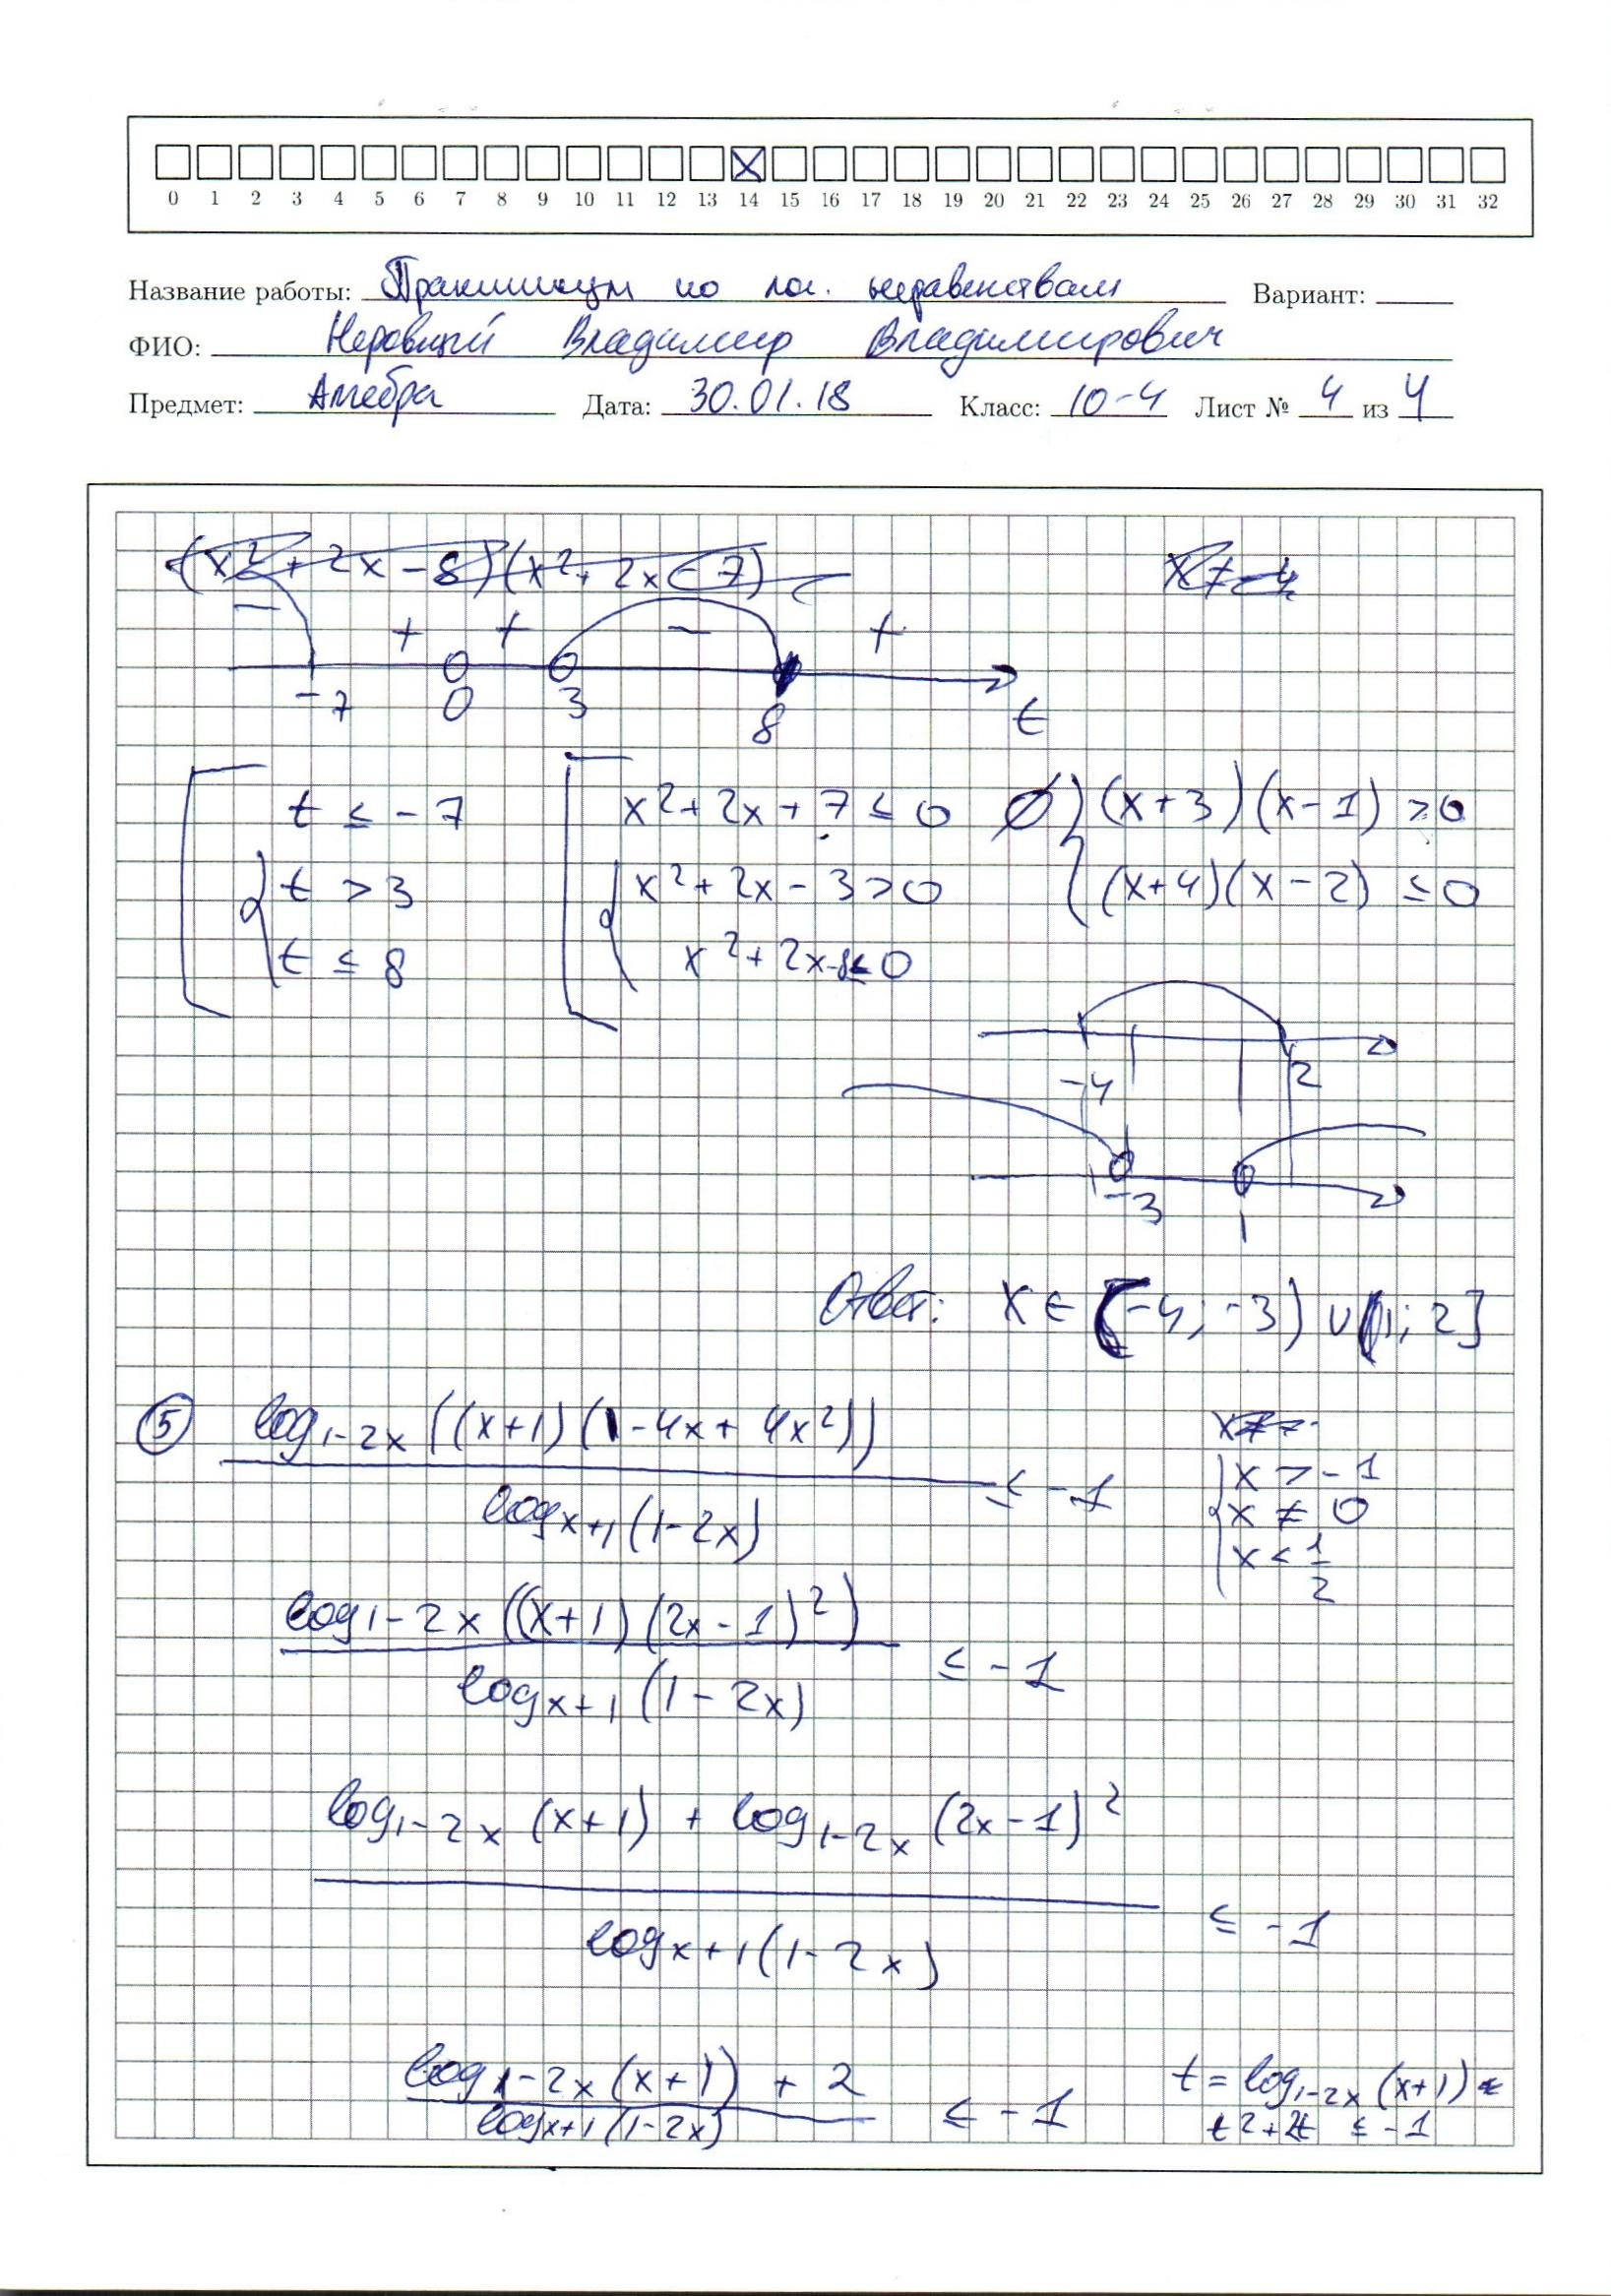 0 1 2 3 4 5 6 7 8 9 10 11 12 13 14 15 16 17 18 19 20 21 22 23 24 25 26 27 28 29 30 31 32
Название работы: Практикум по лог. неравенствам Вариант:
ФИО: Владимир Владимирович
Предмет: Алгебра Дата: 30.01.18 Класс: 10-4 Лист № 4 из 4
(x²+2x-8)(x²+2x-7) x≠-4
- + + - +
-7 0 3 8 t
t ≤ -7 x²+2x+7 ≤ 0 ∅ (x+3)(x-1) >0
t > 3 x²+2x-3>0 (x+4)(x-2) ≤0
t ≤ 8 x²+2x-8≤0
-4 2
-3 1
Ответ: x ∈ [-4; -3) ∪ (1; 2]
5 log₁₋₂ₓ((x+1)(1-4x+4x²)) / logₓ₊₁(1-2x) ≤ -1
x > -1
x ≠ 0
x < 1/2
log₁₋₂ₓ((x+1)(2x-1)²) / logₓ₊₁(1-2x) ≤ -1
log₁₋₂ₓ(x+1) + log₁₋₂ₓ(2x-1)² / logₓ₊₁(1-2x) ≤ -1
log₁₋₂ₓ(x+1) + 2 / logₓ₊₁(1-2x) ≤ -1 t = log₁₋₂ₓ(x+1)
t²+2t ≤ -1